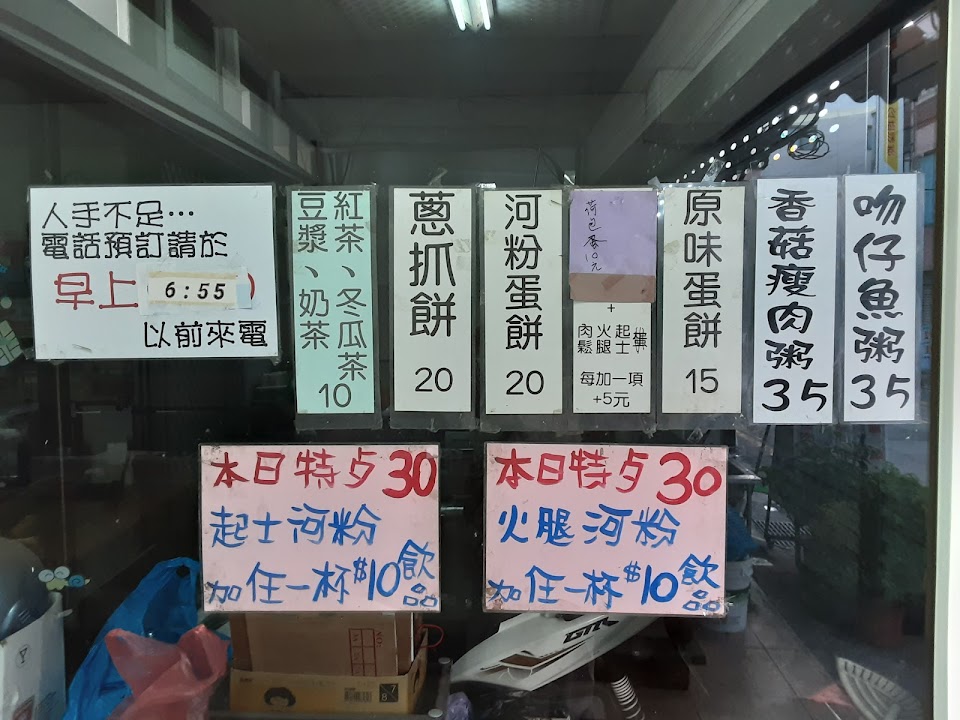 人手不足…
電話預訂請於
早上(6:55)
以前來電
紅茶、冬瓜茶
豆漿、奶茶
10
蔥抓餅
20
河粉蛋餅
20
荷包蛋10元
+
肉鬆
火腿
起士
每加一項
+5元
原味蛋餅
15
香菇瘦肉粥
35
吻仔魚粥
35
本日特歺30
起士河粉
加任一杯$10飲品
本日特歺30
火腿河粉
加任一杯$10飲品
GMC